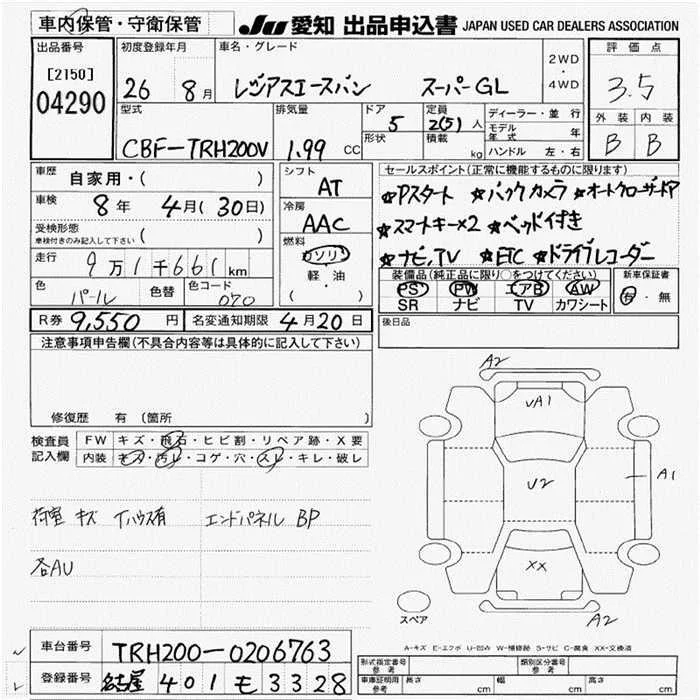 車内保管・守衛保管
JU 愛知 出品申込書 JAPAN USED CAR DEALERS ASSOCIATION
出品番号
[2150]
04290
初度登録年月
26 8月
車名・グレード
レジアスエースバン スーパーGL
2WD
・
4WD
評価点
3.5
外装 内装
B B
型式
CBF-TRH200V
排気量
1.99 CC
ドア
5
形状
定員
2(5)人
積載
kg
ディーラー・並行
モデル年式 年
ハンドル 左・右
車歴 自家用・( )
車検 8年 4月(30日)
受検形態
車検付きのみ記入して下さい ( )
走行 9万1千661km
色 パール 色替 色コード 070
シフト
AT
冷房
AAC
燃料
ガソリン
軽・油
( )
セールスポイント(正常に機能するものに限ります)
★Pスタート ★バックカメラ ★オートクローザードア
★スマートキー×2 ★ベッド付き
★ナビ,TV ★ETC ★ドライブレコーダー
装備品(純正品に限り○をつけてください)
PS PW エアB AW
SR ナビ TV カワシート
新車保証書
有・無
R券 9,550円 名変通知期限 4月20日
後日品
注意事項申告欄(不具合内容等は具体的に記入して下さい)
修復歴 有 (箇所
検査員
記入欄
FW キズ・飛石・ヒビ割・リペア跡・X要
内装 キズ・汚レ・コゲ・穴・スレ・キレ・破レ
荷室 キズ イハウス有 エンドパネル BP
各AU
A2
VA1
U2
A1
XX
スペア
A2
A-キズ E-エクボ U-凹み W-補修跡 S-サビ C-腐食 XX-交換済
車台番号 TRH200-0206763
登録番号 名古屋 401 モ 3328
形式指定番号
参考
類別区分番号
参考
車庫証明用
参考
長さ cm 幅 cm 高さ cm